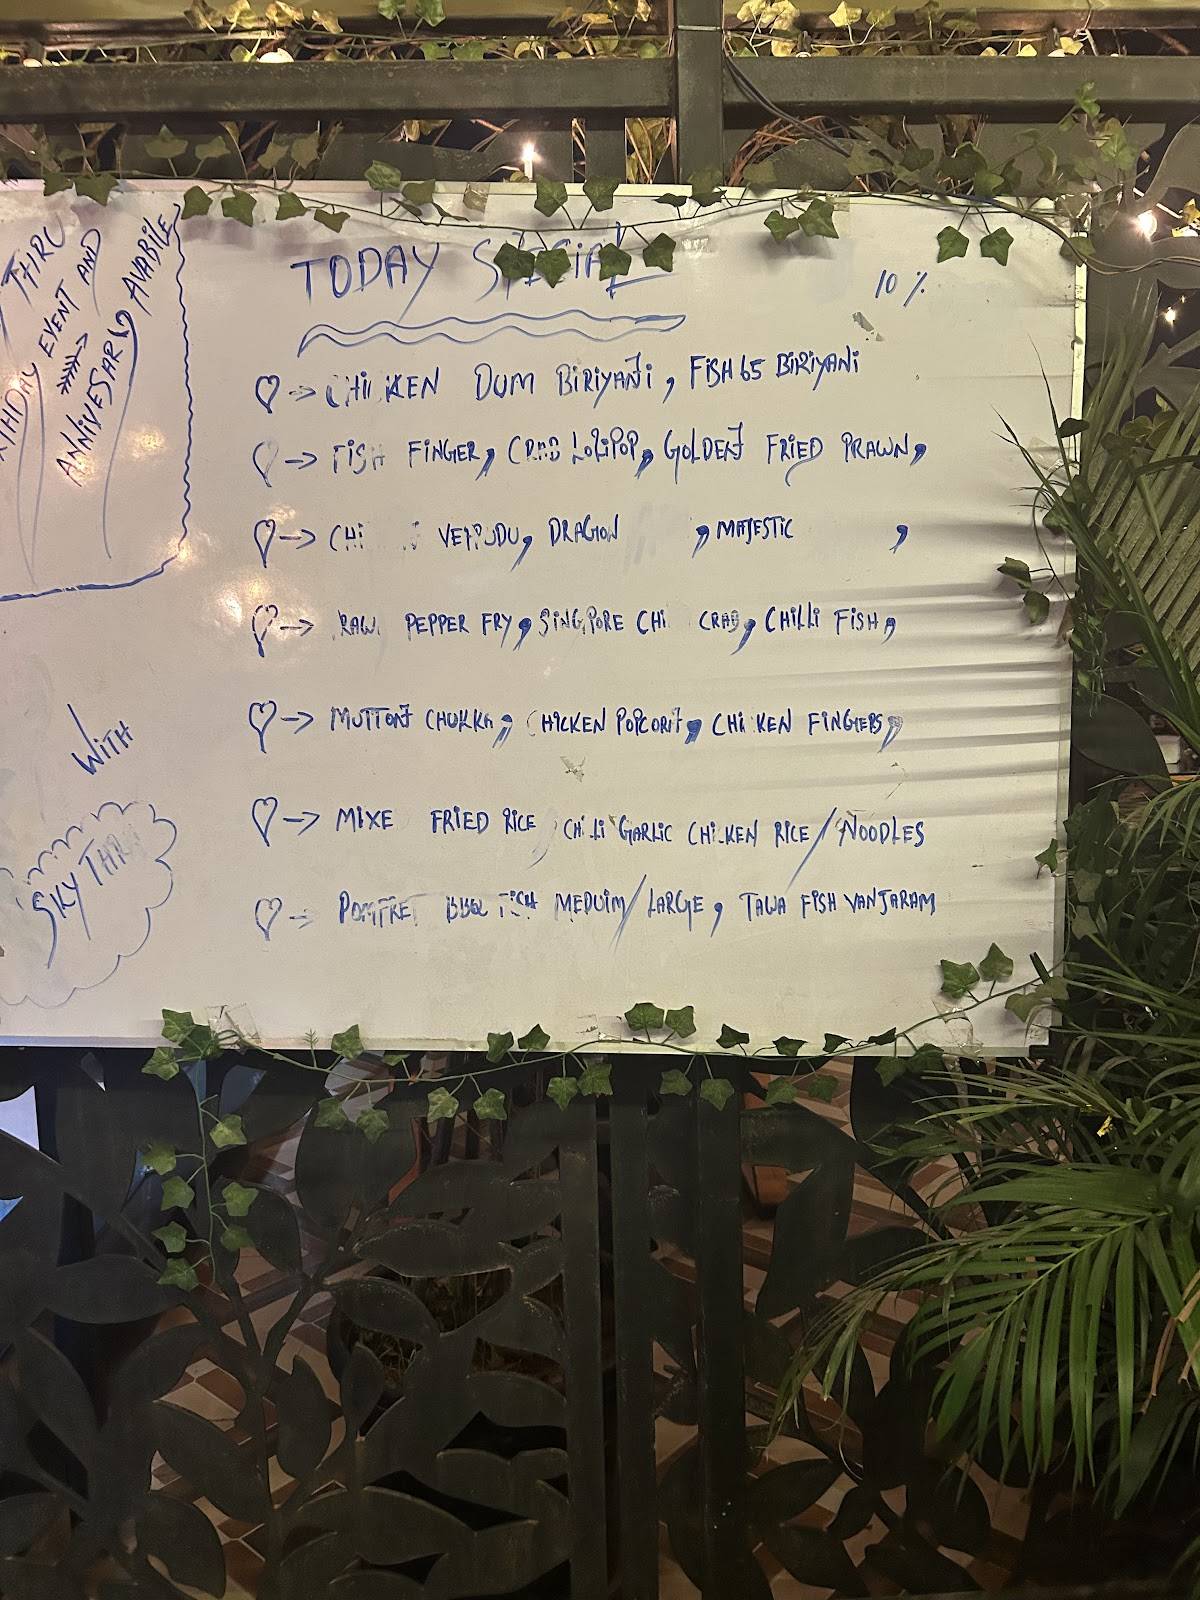 THRU
EVENT AND
ANNIVESARY AVABILE
WITH
SKY THRU
TODAY SPECIAL
10 %
CHICKEN DUM BIRIYANI, FISH 65 BIRIYANI
FISH FINGER, CRAB LOLIPOP, GOLDEN FRIED PRAWN,
CHI VEPPUDU, DRAGON , MAJESTIC ,
RAW PEPPER FRY, SINGPORE CHI CRAB, CHILLI FISH,
MUTTON CHUKKA, CHICKEN POPCORN, CHICKEN FINGERS,
MIXE FRIED RICE, CHILLI GARLIC CHICKEN RICE/NOODLES
POMFRET BBQ FISH MEDUIM/LARGE, TAWA FISH VANJARAM